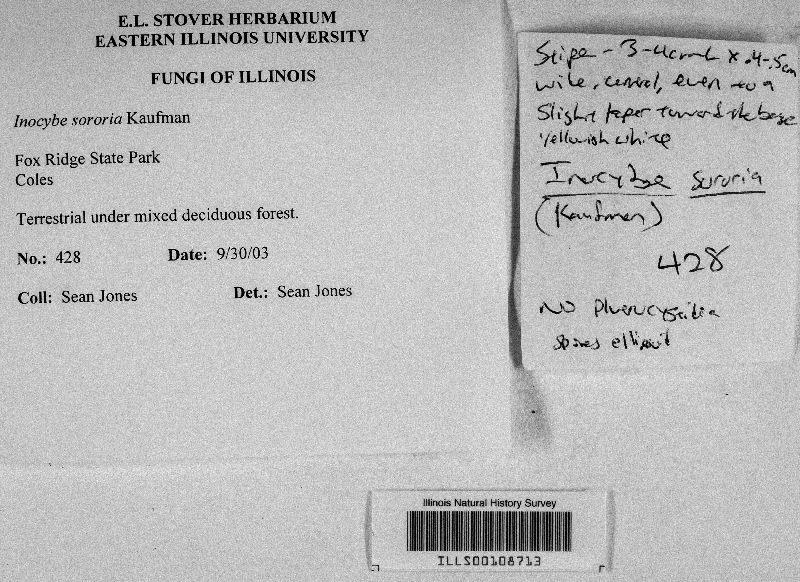 E.L. STOVER HERBARIUM
EASTERN ILLINOIS UNIVERSITY
FUNGI OF ILLINOIS
Inocybe sororia Kaufman
Fox Ridge State Park
Coles
Terrestrial under mixed deciduous forest.
No.: 428 Date: 9/30/03
Coll: Sean Jones Det.: Sean Jones
Stipe - 3-4cm x .4-.5cm
wide, central, even to a
slight taper toward the base
yellowish white
Inocybe sororia
(Kaufman)
428
NO Pleurocystidia
spores
Illinois Natural History Survey
ILLS00108713